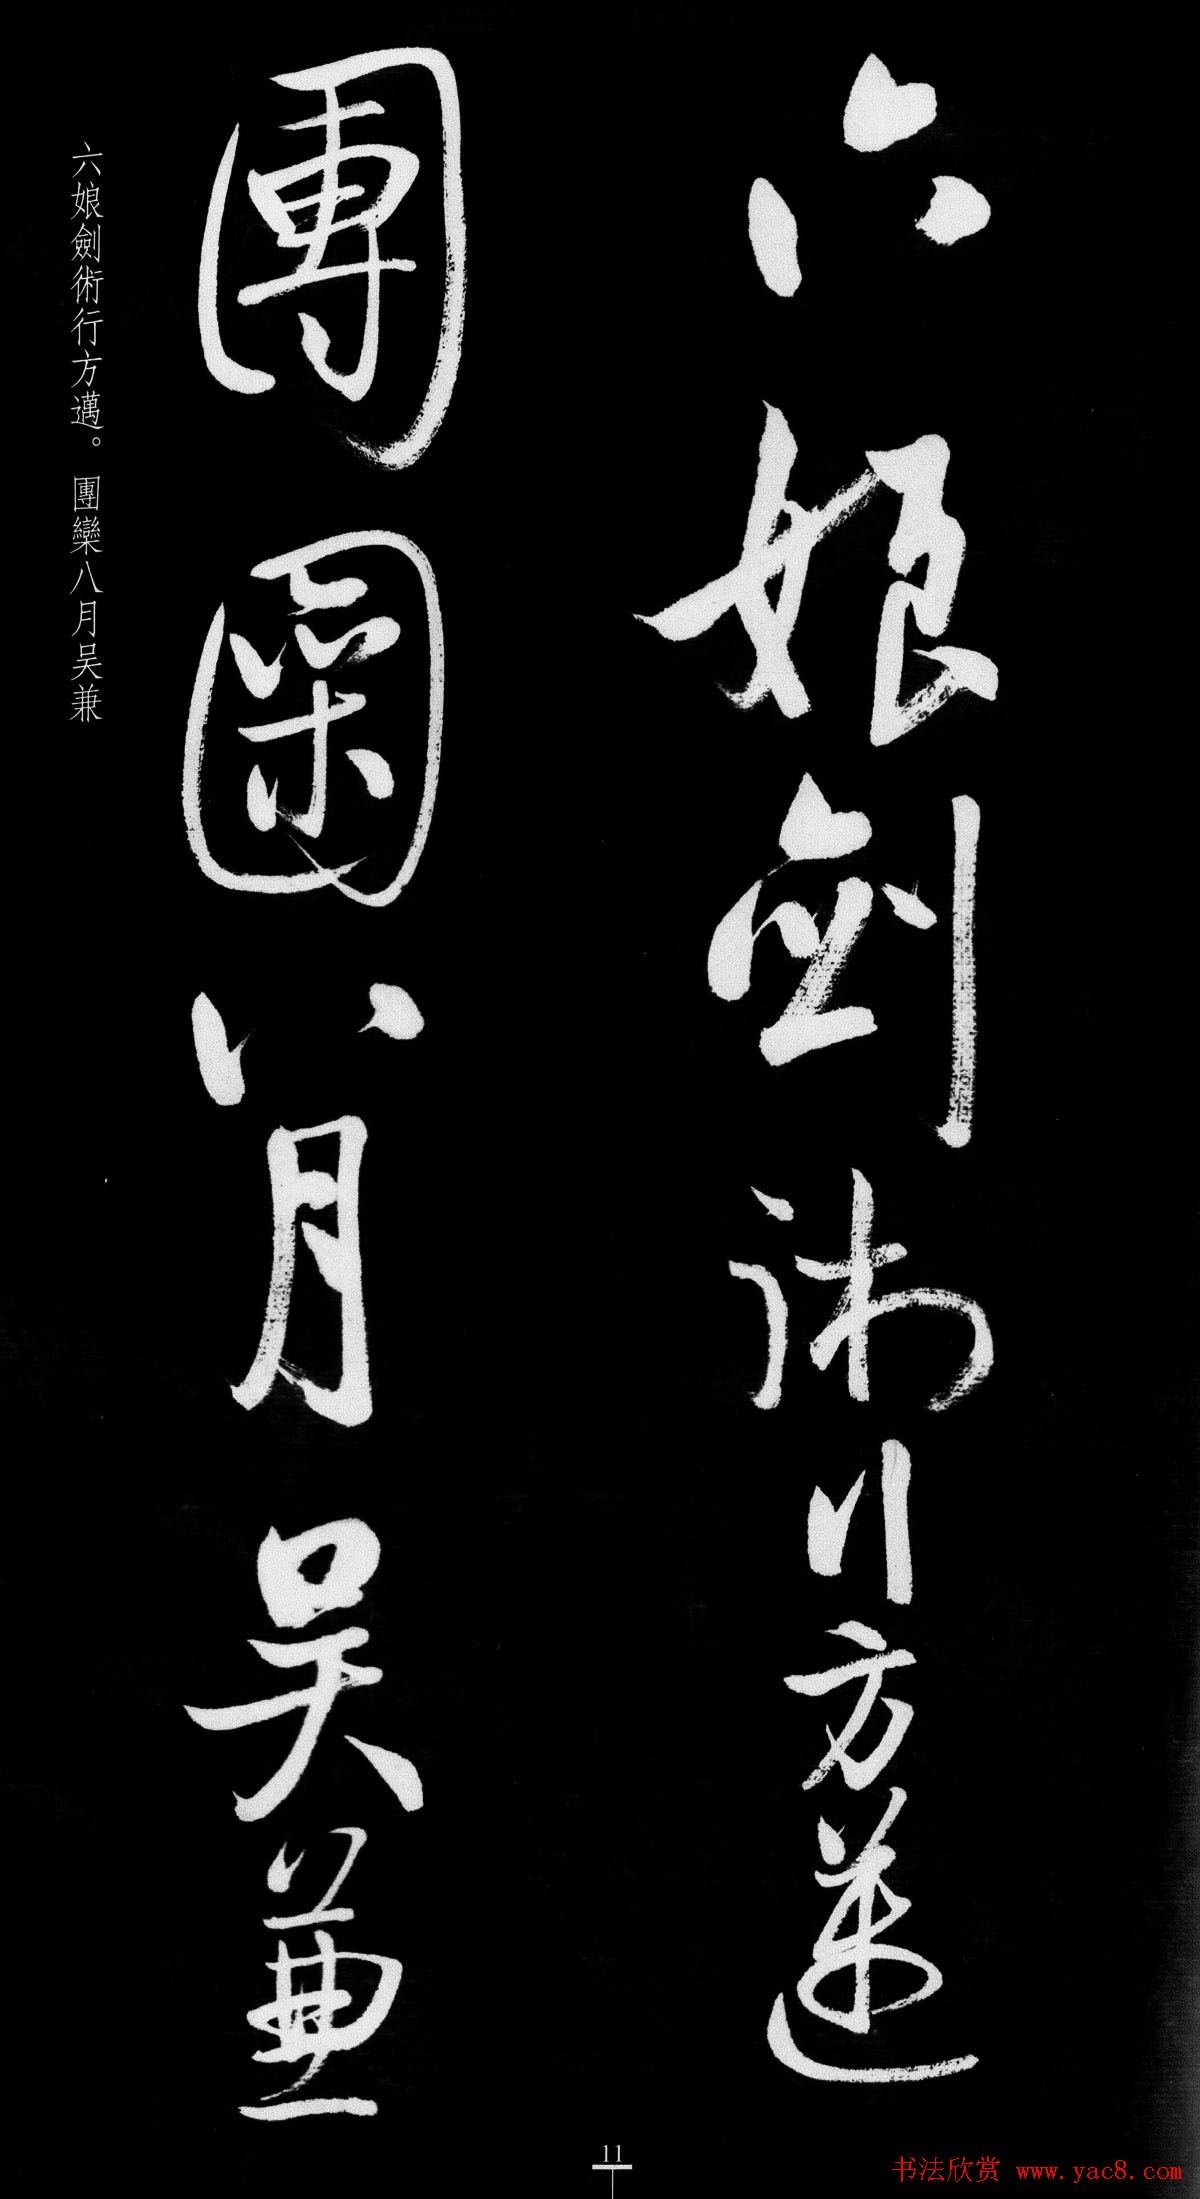 六娘劍術行方邁
團圞八月吳兼
六娘劍術行方邁。團欒八月吳兼
11
书法欣赏 www.yac8.com